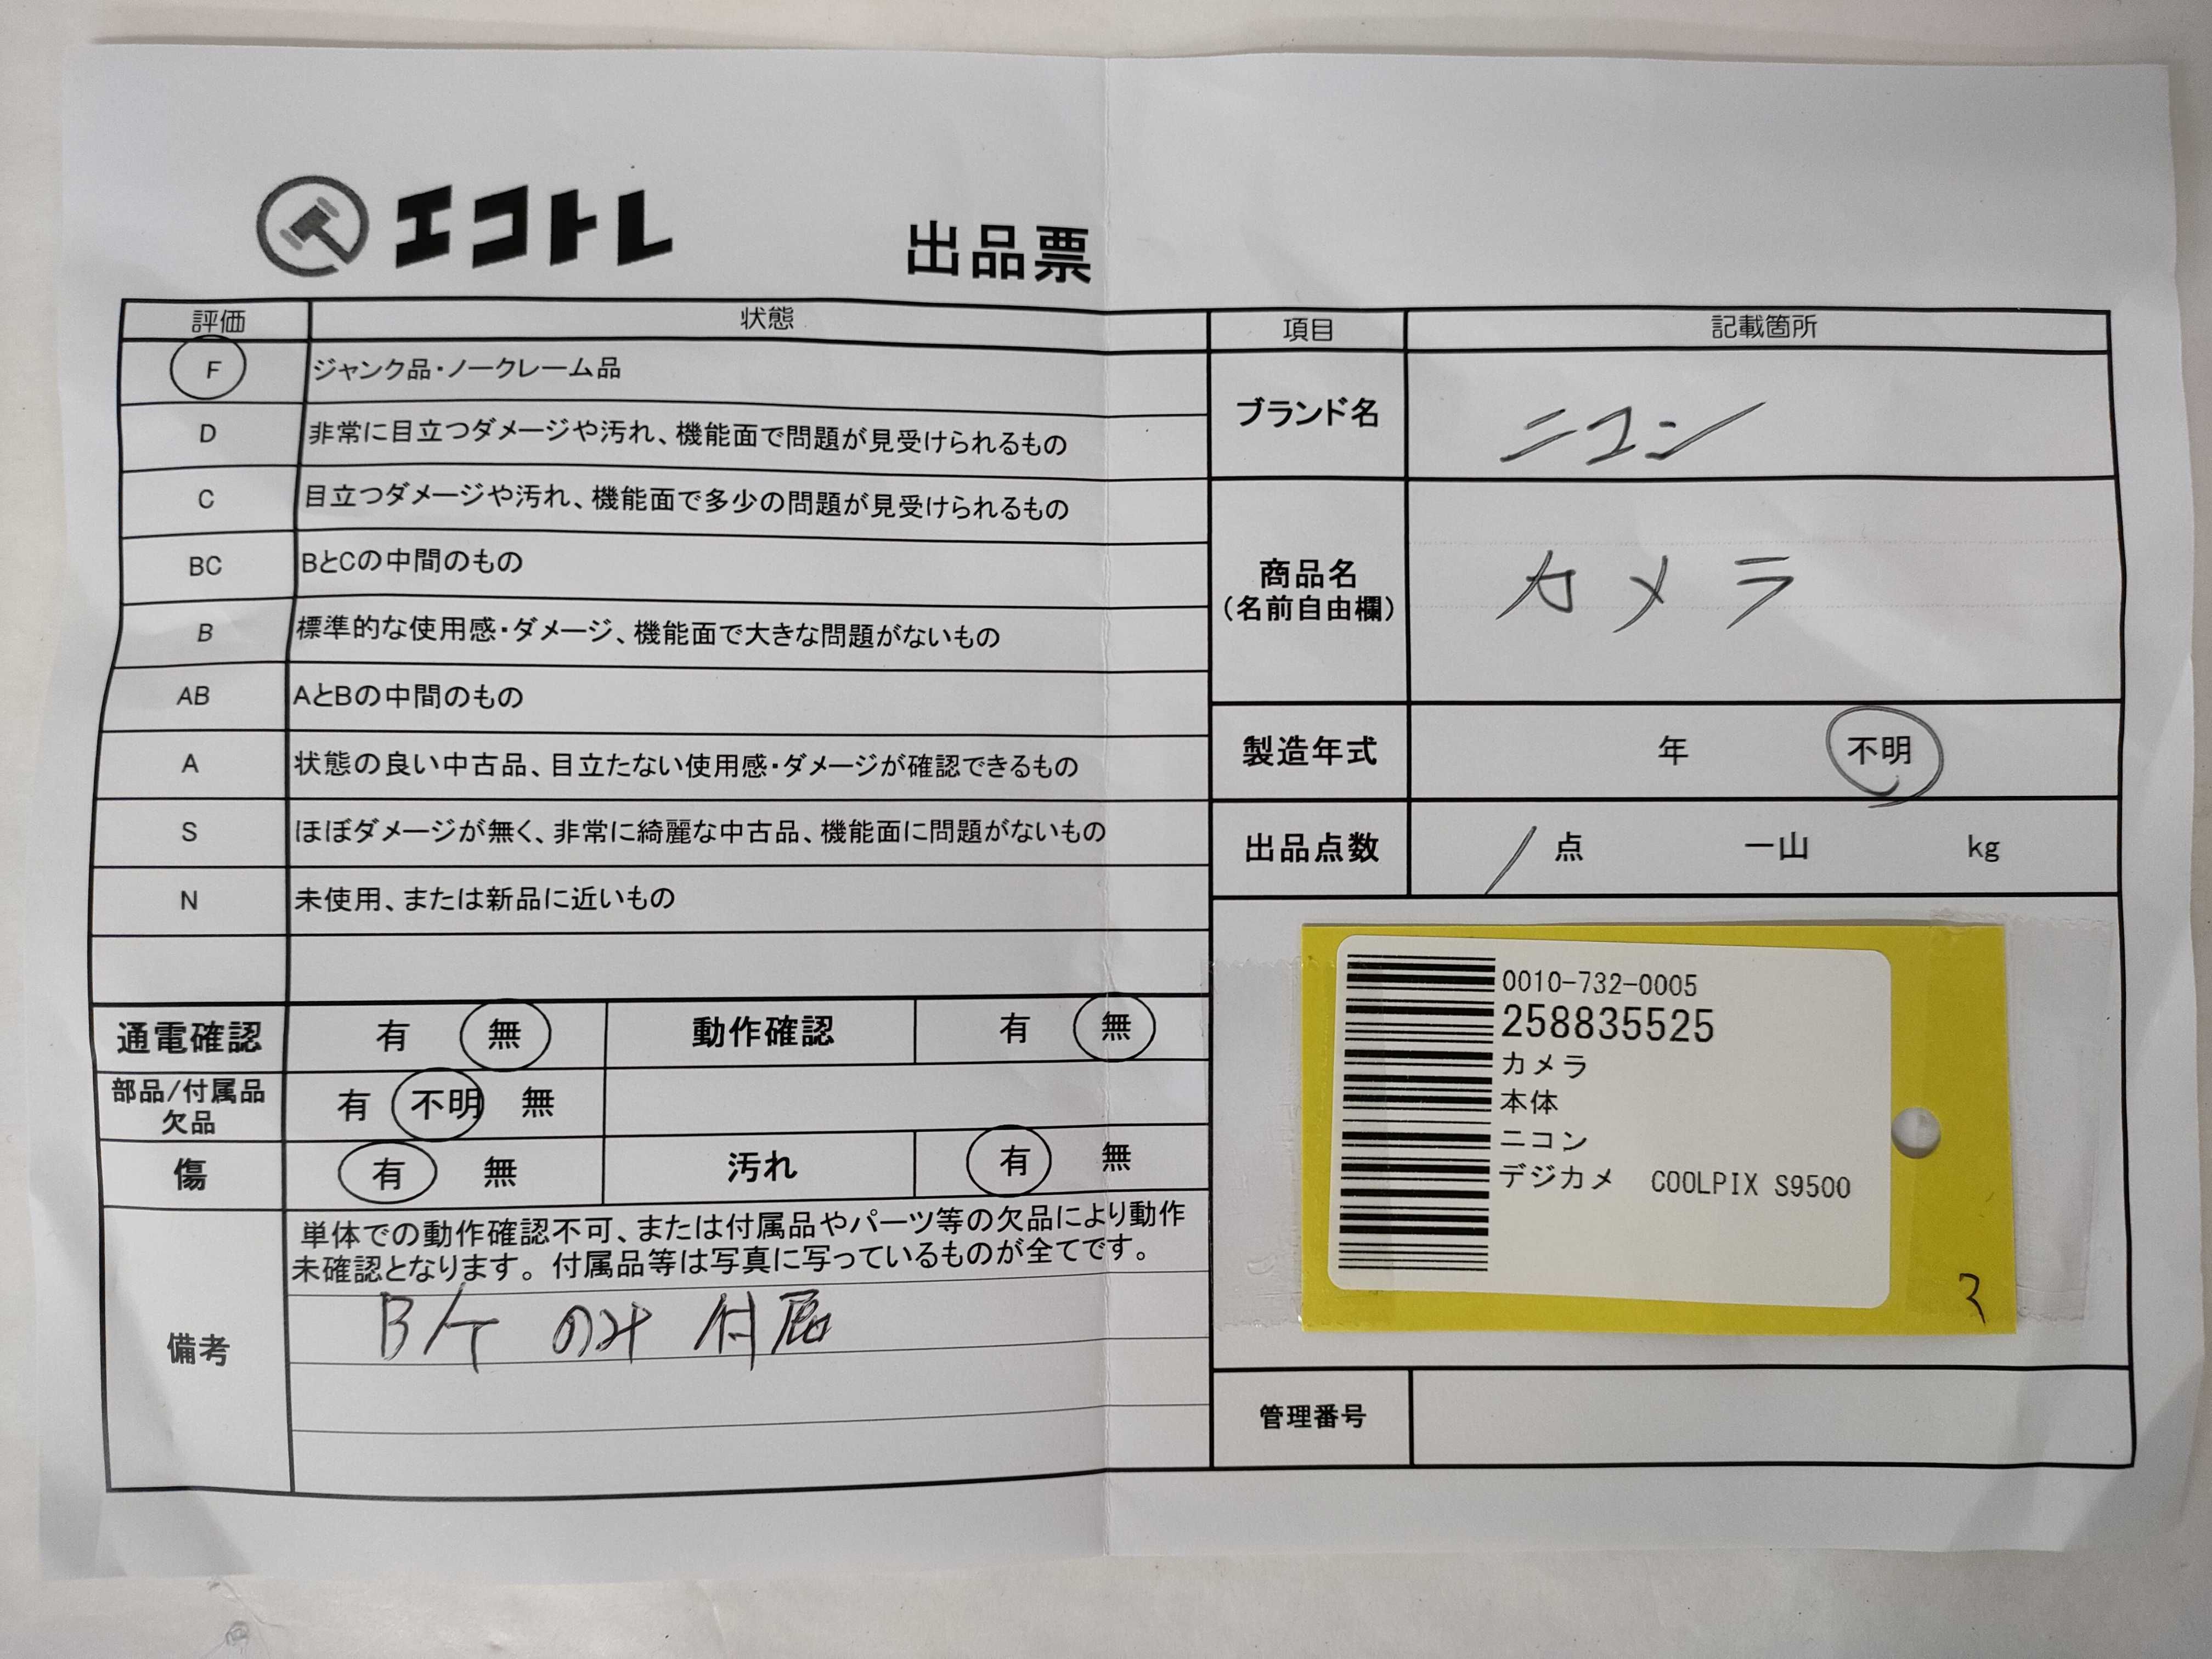 エコトレ
出品票
評価 状態
F ジャンク品・ノークレーム品
D 非常に目立つダメージや汚れ、機能面で問題が見受けられるもの
C 目立つダメージや汚れ、機能面で多少の問題が見受けられるもの
BC BとCの中間のもの
B 標準的な使用感・ダメージ、機能面で大きな問題がないもの
AB AとBの中間のもの
A 状態の良い中古品、目立たない使用感・ダメージが確認できるもの
S ほぼダメージが無く、非常に綺麗な中古品、機能面に問題がないもの
N 未使用、または新品に近いもの
通電確認 有 無 動作確認 有 無
部品/付属品
欠品
有 不明 無
傷 有 無 汚れ 有 無
備考
単体での動作確認不可、または付属品やパーツ等の欠品により動作
未確認となります。付属品等は写真に写っているものが全てです。
B/T のみ 付属
項目 記載箇所
ブランド名 ニコン
商品名
(名前自由欄)
カメラ
製造年式 年 不明
出品点数 1 点 一山 kg
0010-732-0005
258835525
カメラ
本体
ニコン
デジカメ COOLPIX S9500
管理番号